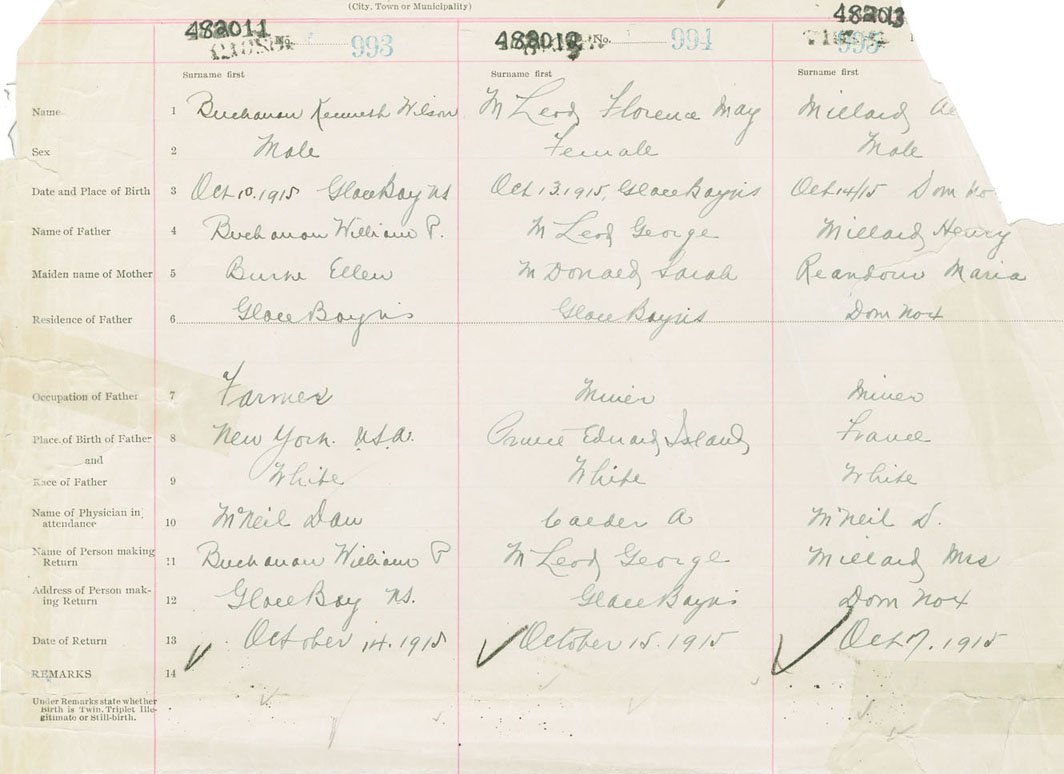 (City, Town or Municipality)
482011 No. 993
482012 No. 994
482013 995
Surname first Surname first Surname first
Name 1 Buchanan Kenneth Wilson McLeod Florence May Millard
Sex 2 Male Female Male
Date and Place of Birth 3 Oct 10. 1915 Glace Bay NS Oct 13. 1915, Glace Bay NS Oct 14/15 Dom No
Name of Father 4 Buchanan William P. McLeod George Millard Henry
Maiden name of Mother 5 Burke Ellen McDonald Sarah Maria
Residence of Father 6 Glace Bay NS Glace Bay NS Dom No 4
Occupation of Father 7 Farmer Miner Miner
Place of Birth of Father 8 New York. U.S.A. Prince Edward Island France
and
Race of Father 9 White White White
Name of Physician in
attendance 10 McNeil Dan Calder A McNeil D.
Name of Person making
Return 11 Buchanan William P McLeod George Millard Mrs
Address of Person mak-
ing Return 12 Glace Bay NS. Glace Bay NS Dom No 4
Date of Return 13 October 14. 1915 October 15. 1915 Oct 17. 1915
REMARKS 14
Under Remarks state whether
Birth is Twin, Triplet Ille-
gitimate or Still-birth.